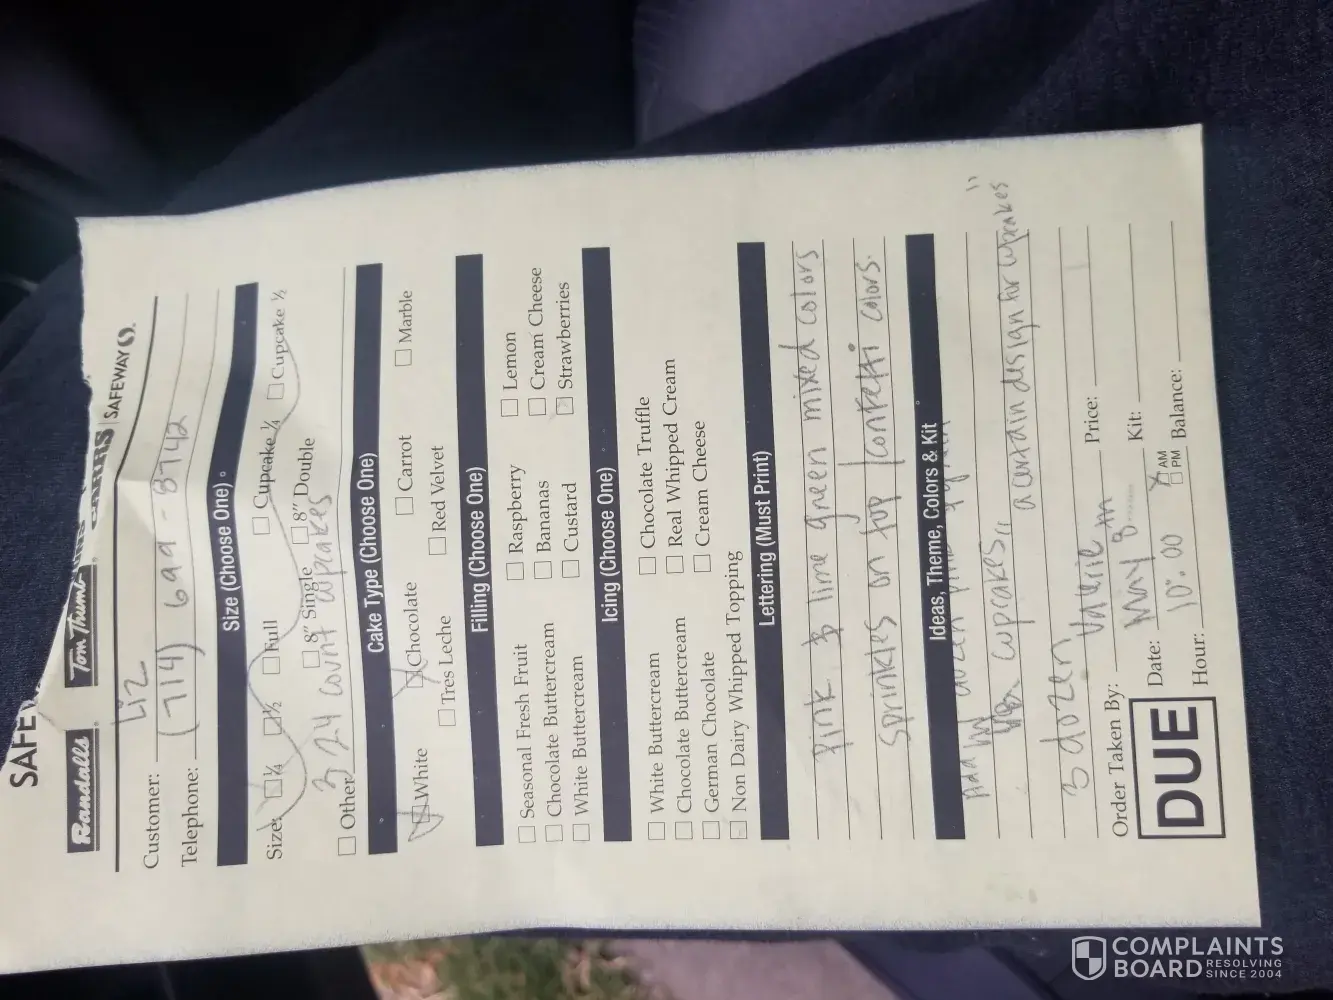 SAFE
Randalls Tom Thumb SAFEWAY
Customer: Liz
Telephone: (714) 699-8742
Size (Choose One)
Size: ☐ ¼ ☐ ½ ☐ Full ☐ Cupcake ¼ ☐ Cupcake ½
☐ 8" Single ☐ 8" Double
☐ Other 24 count cupcakes
Cake Type (Choose One)
☐ White ☐ Chocolate ☐ Carrot ☐ Marble
☐ Tres Leche ☐ Red Velvet
Filling (Choose One)
☐ Seasonal Fresh Fruit ☐ Raspberry ☐ Lemon
☐ Chocolate Buttercream ☐ Bananas ☐ Cream Cheese
☐ White Buttercream ☐ Custard ☐ Strawberries
Icing (Choose One)
☐ White Buttercream ☐ Chocolate Truffle
☐ Chocolate Buttercream ☐ Real Whipped Cream
☐ German Chocolate ☐ Cream Cheese
☐ Non Dairy Whipped Topping
Lettering (Must Print)
Pink & lime green mixed colors
sprinkles on top / confetti colors.
Ideas, Theme, Colors & Kit
dozen
cupcakes, "a certain design for cupcakes"
3 dozen
Order Taken By: Valerie m Price:
DUE
Date: May 8 Kit:
Hour: 10:00 ☐ AM ☐ PM Balance:
COMPLAINTS
BOARD RESOLVING SINCE 2004